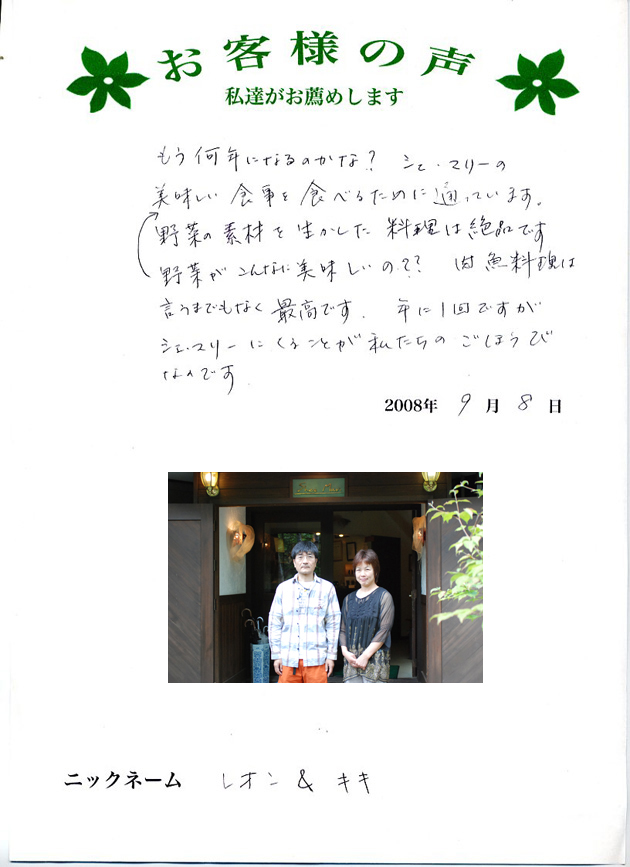 お客様の声
私達がお薦めします
もう何年になるのかな? シェ・マリーの
美味しい食事を食べるために通っています。
野菜の素材を生かした料理は絶品です
野菜がこんなに美味しいの?? 肉魚料理は
言うまでもなく最高です。年に1回ですが
シェ・マリーにくることが私たちのごほうび
なんです
2008年 9月 8日
ニックネーム レオン & キキ